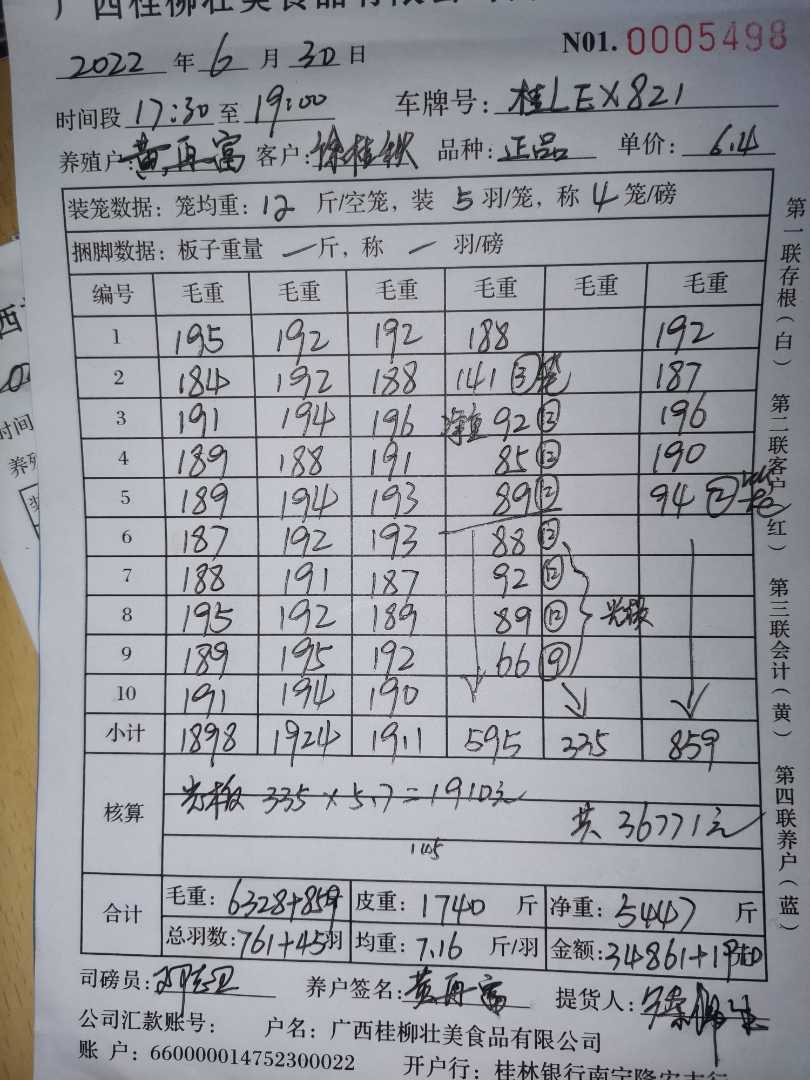 广西桂柳壮美食品有限公司
2022 年 6 月 30 日 N01. 0005498
时间段 17:30 至 19:00 车牌号: 桂LEX821
养殖户: 黄再富 客户: 徐桂钦 品种: 正品 单价: 6.4
装笼数据: 笼均重: 12 斤/空笼, 装 5 羽/笼, 称 4 笼/磅
捆脚数据: 板子重量 — 斤, 称 — 羽/磅
编号 毛重 毛重 毛重 毛重 毛重
1 195 192 192 188 192
2 184 192 188 141 ③笼 187
3 191 194 196 净重 92 ⑬ 196
4 189 188 191 85 ⑫ 190
5 189 194 193 89 ⑫ 94 ②
6 187 192 193 88 ⑫
7 188 191 187 92 ⑫
8 195 192 189 89 ⑫ 光板
9 189 195 192 66 ⑨
10 191 194 190
小计 1898 1924 1911 595 335 859
核算 光板 335 × 5.7 = 1910元
共 36771元
145
合计 毛重: 6328+859 皮重: 1740 斤 净重: 5447 斤
总羽数: 761+45羽 均重: 7.16 斤/羽 金额: 34861+1910
司磅员: 养户签名: 黄再富 提货人:
公司汇款账号: 户名: 广西桂柳壮美食品有限公司
账 户: 660000014752300022 开户行: 桂林银行南宁隆安支行
第一联存根(白) 第二联客户(红) 第三联会计(黄) 第四联养户(蓝)
西
202
时间
养殖